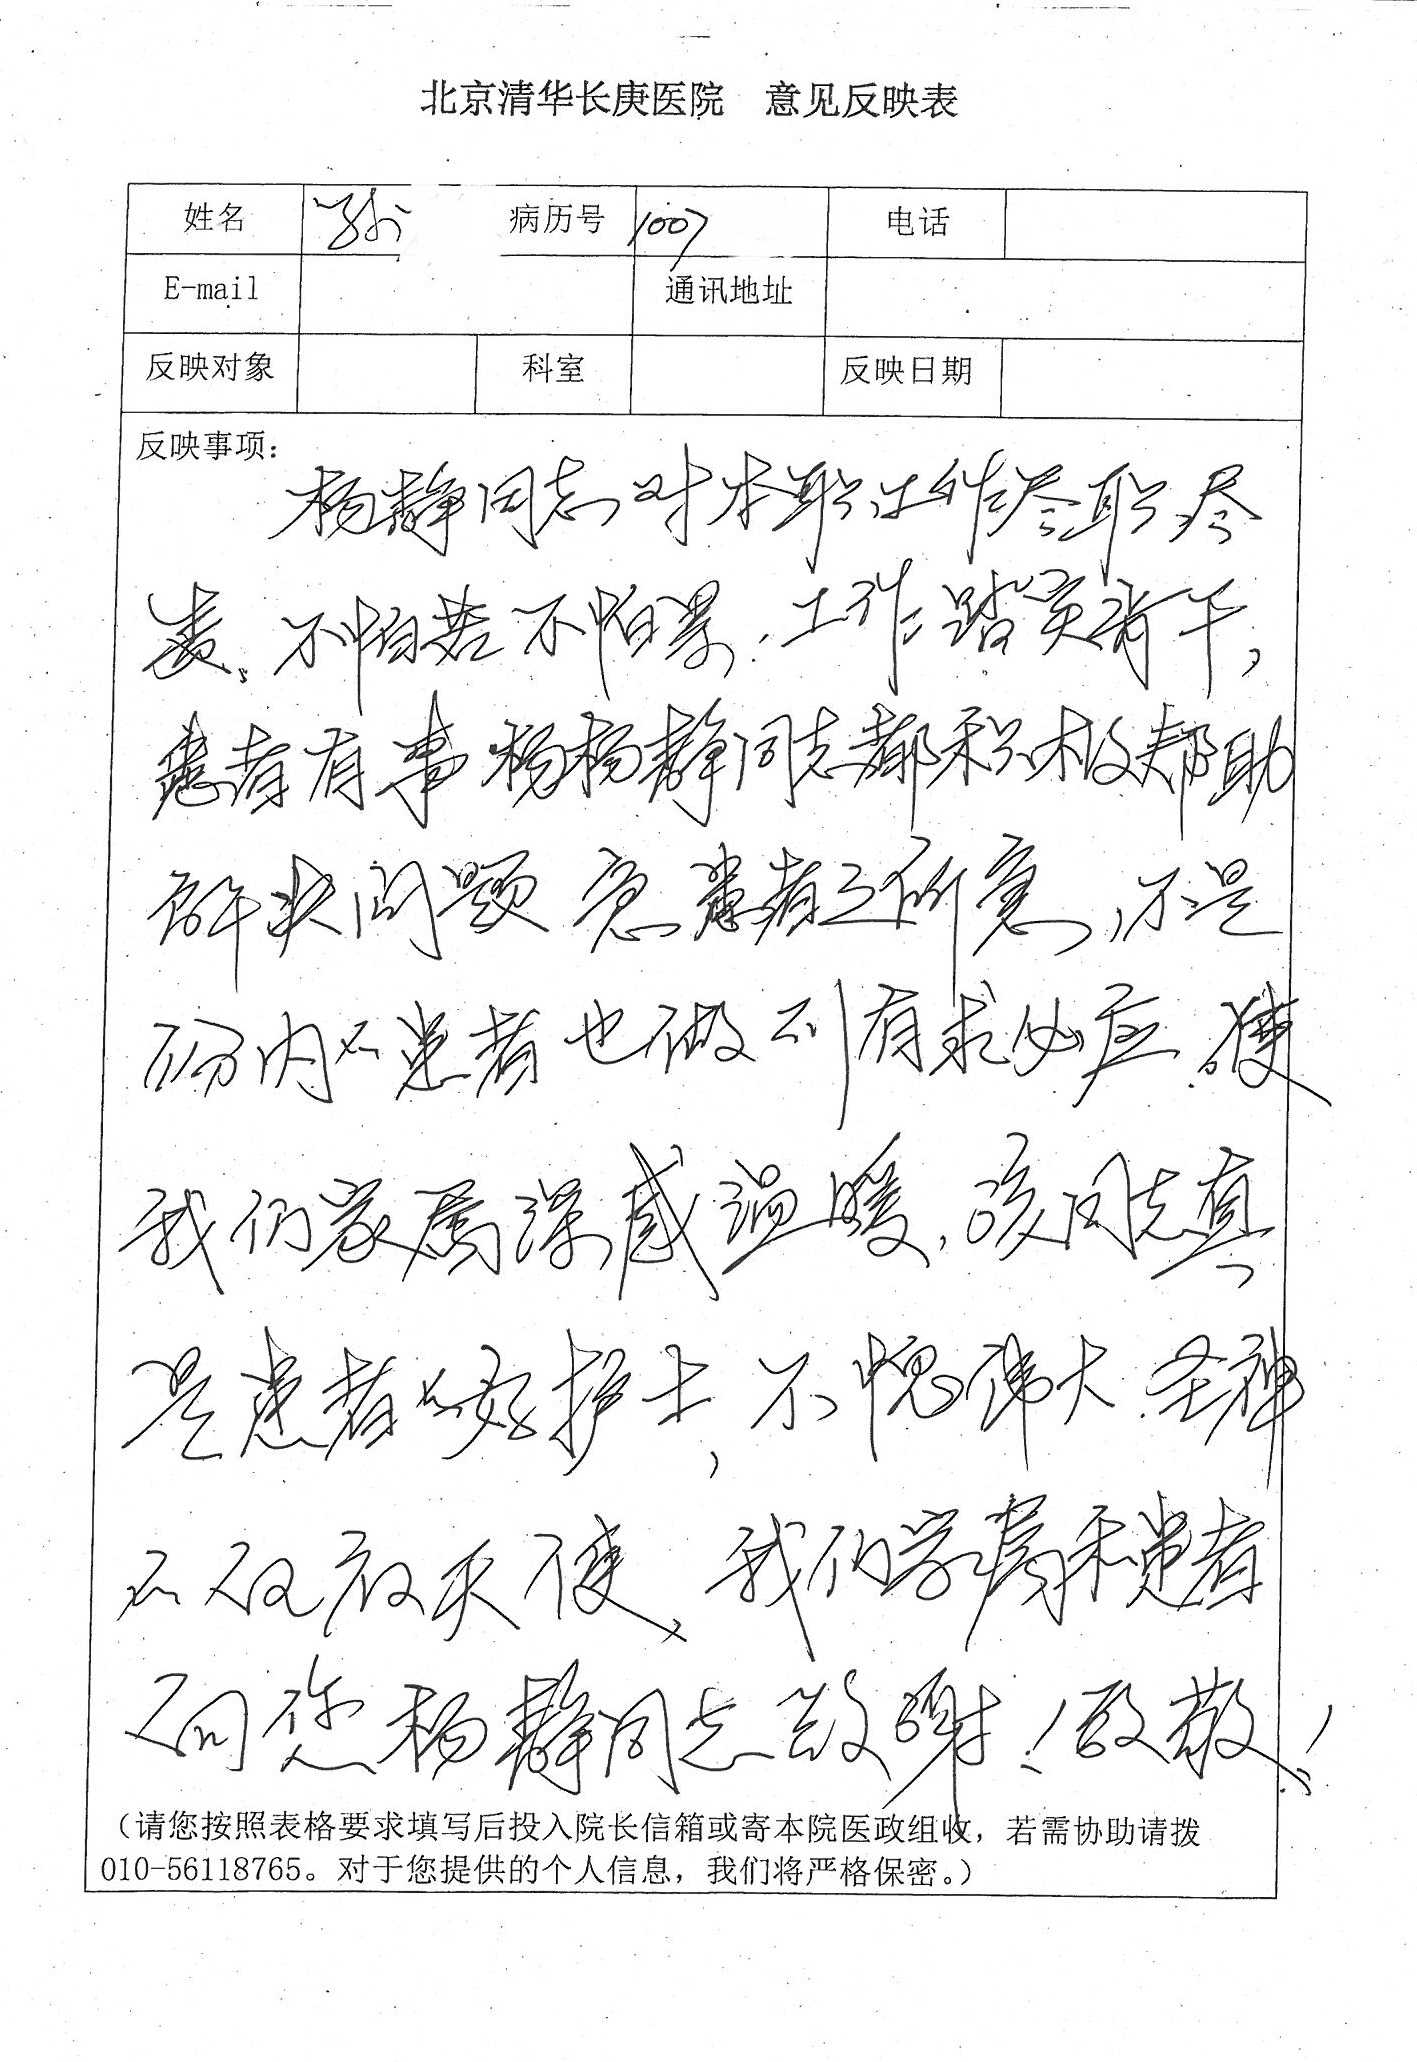 北京清华长庚医院 意见反映表
姓名 病历号 1007 电话
E-mail 通讯地址
反映对象 科室 反映日期
反映事项:
杨静同志对本职工作尽职尽
责、不怕苦不怕累、工作踏实肯干,
患者有事杨杨静同志都积极帮助
解决问题 急患者之所急,不是
份内的患者也做到有求必应、使
我们家属深感温暖,该同志真
是患者的好护士,不愧伟大圣神
的白衣天使、我们家属和患者
向您杨静同志致谢!致敬!
(请您按照表格要求填写后投入院长信箱或寄本院医政组收,若需协助请拨
010-56118765。对于您提供的个人信息,我们将严格保密。)